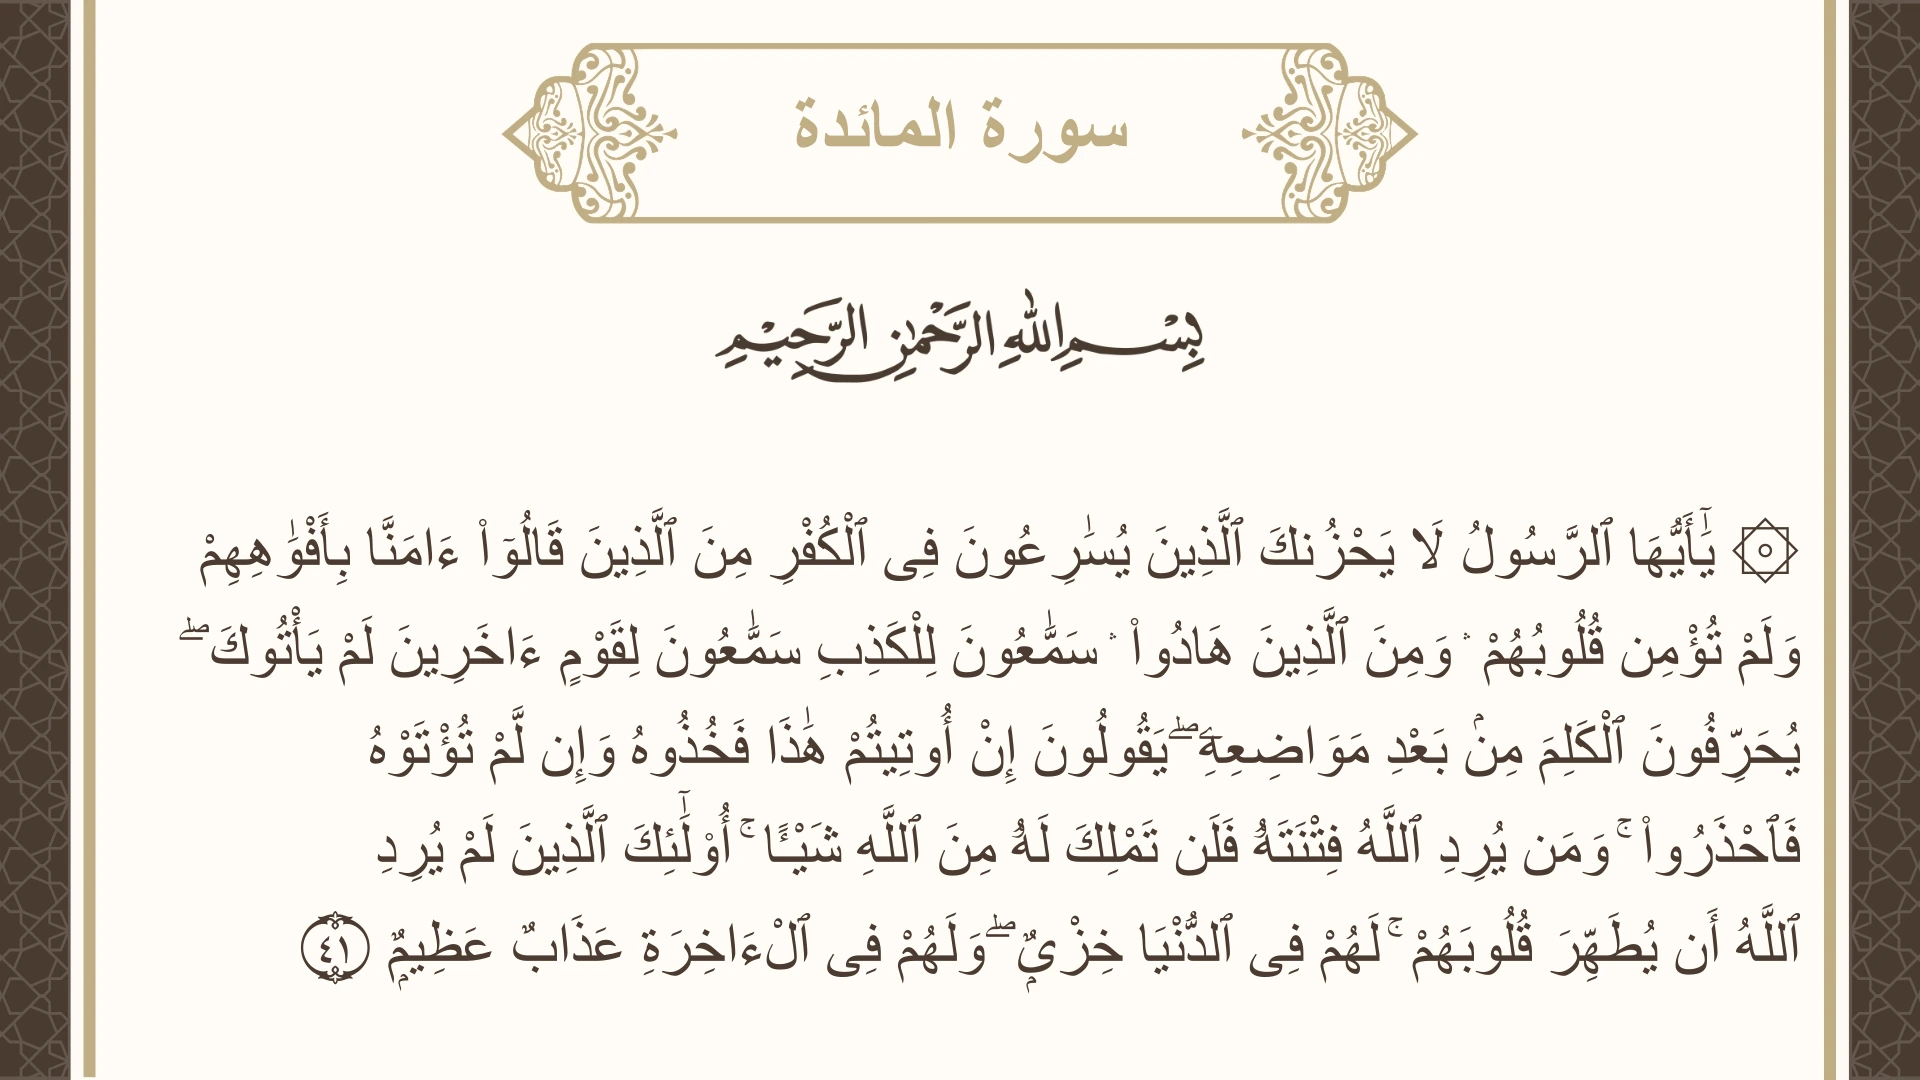 سورة المائدة
بِسْمِ اللَّهِ الرَّحْمَٰنِ الرَّحِيمِ
۞ يَٰٓأَيُّهَا ٱلرَّسُولُ لَا يَحْزُنكَ ٱلَّذِينَ يُسَٰرِعُونَ فِى ٱلْكُفْرِ مِنَ ٱلَّذِينَ قَالُوٓا۟ ءَامَنَّا بِأَفْوَٰهِهِمْ
وَلَمْ تُؤْمِن قُلُوبُهُمْ ۛ وَمِنَ ٱلَّذِينَ هَادُوا۟ ۛ سَمَّٰعُونَ لِلْكَذِبِ سَمَّٰعُونَ لِقَوْمٍ ءَاخَرِينَ لَمْ يَأْتُوكَ ۖ
يُحَرِّفُونَ ٱلْكَلِمَ مِنۢ بَعْدِ مَوَاضِعِهِۦ ۖ يَقُولُونَ إِنْ أُوتِيتُمْ هَٰذَا فَخُذُوهُ وَإِن لَّمْ تُؤْتَوْهُ
فَٱحْذَرُوا۟ ۚ وَمَن يُرِدِ ٱللَّهُ فِتْنَتَهُۥ فَلَن تَمْلِكَ لَهُۥ مِنَ ٱللَّهِ شَيْـًٔا ۚ أُو۟لَٰٓئِكَ ٱلَّذِينَ لَمْ يُرِدِ
ٱللَّهُ أَن يُطَهِّرَ قُلُوبَهُمْ ۚ لَهُمْ فِى ٱلدُّنْيَا خِزْىٌۭ ۖ وَلَهُمْ فِى ٱلْءَاخِرَةِ عَذَابٌ عَظِيمٌۭ ٤١